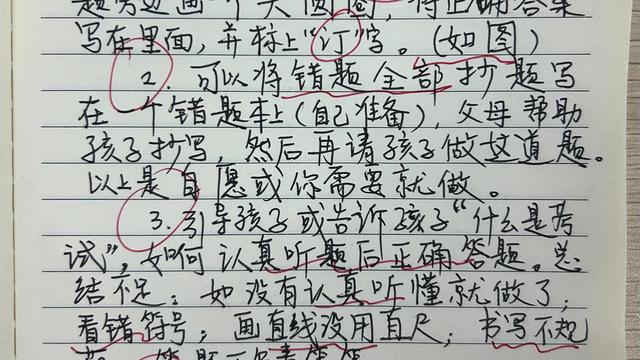 题旁边画一个大圆圈，将正确答案
写在里面，并标上“订”字。(如图)
2. 可以将错题全部抄题写
在一个错题本上(自己准备)，父母帮助
孩子抄写，然后再请孩子做这道题。
以上是自愿或你需要就做。
3. 引导孩子或告诉孩子“什么是考
试”，如何认真听题后正确答题。总
结不足：如没有认真听懂就做了；
看错符号；画直线没用直尺；书写不规